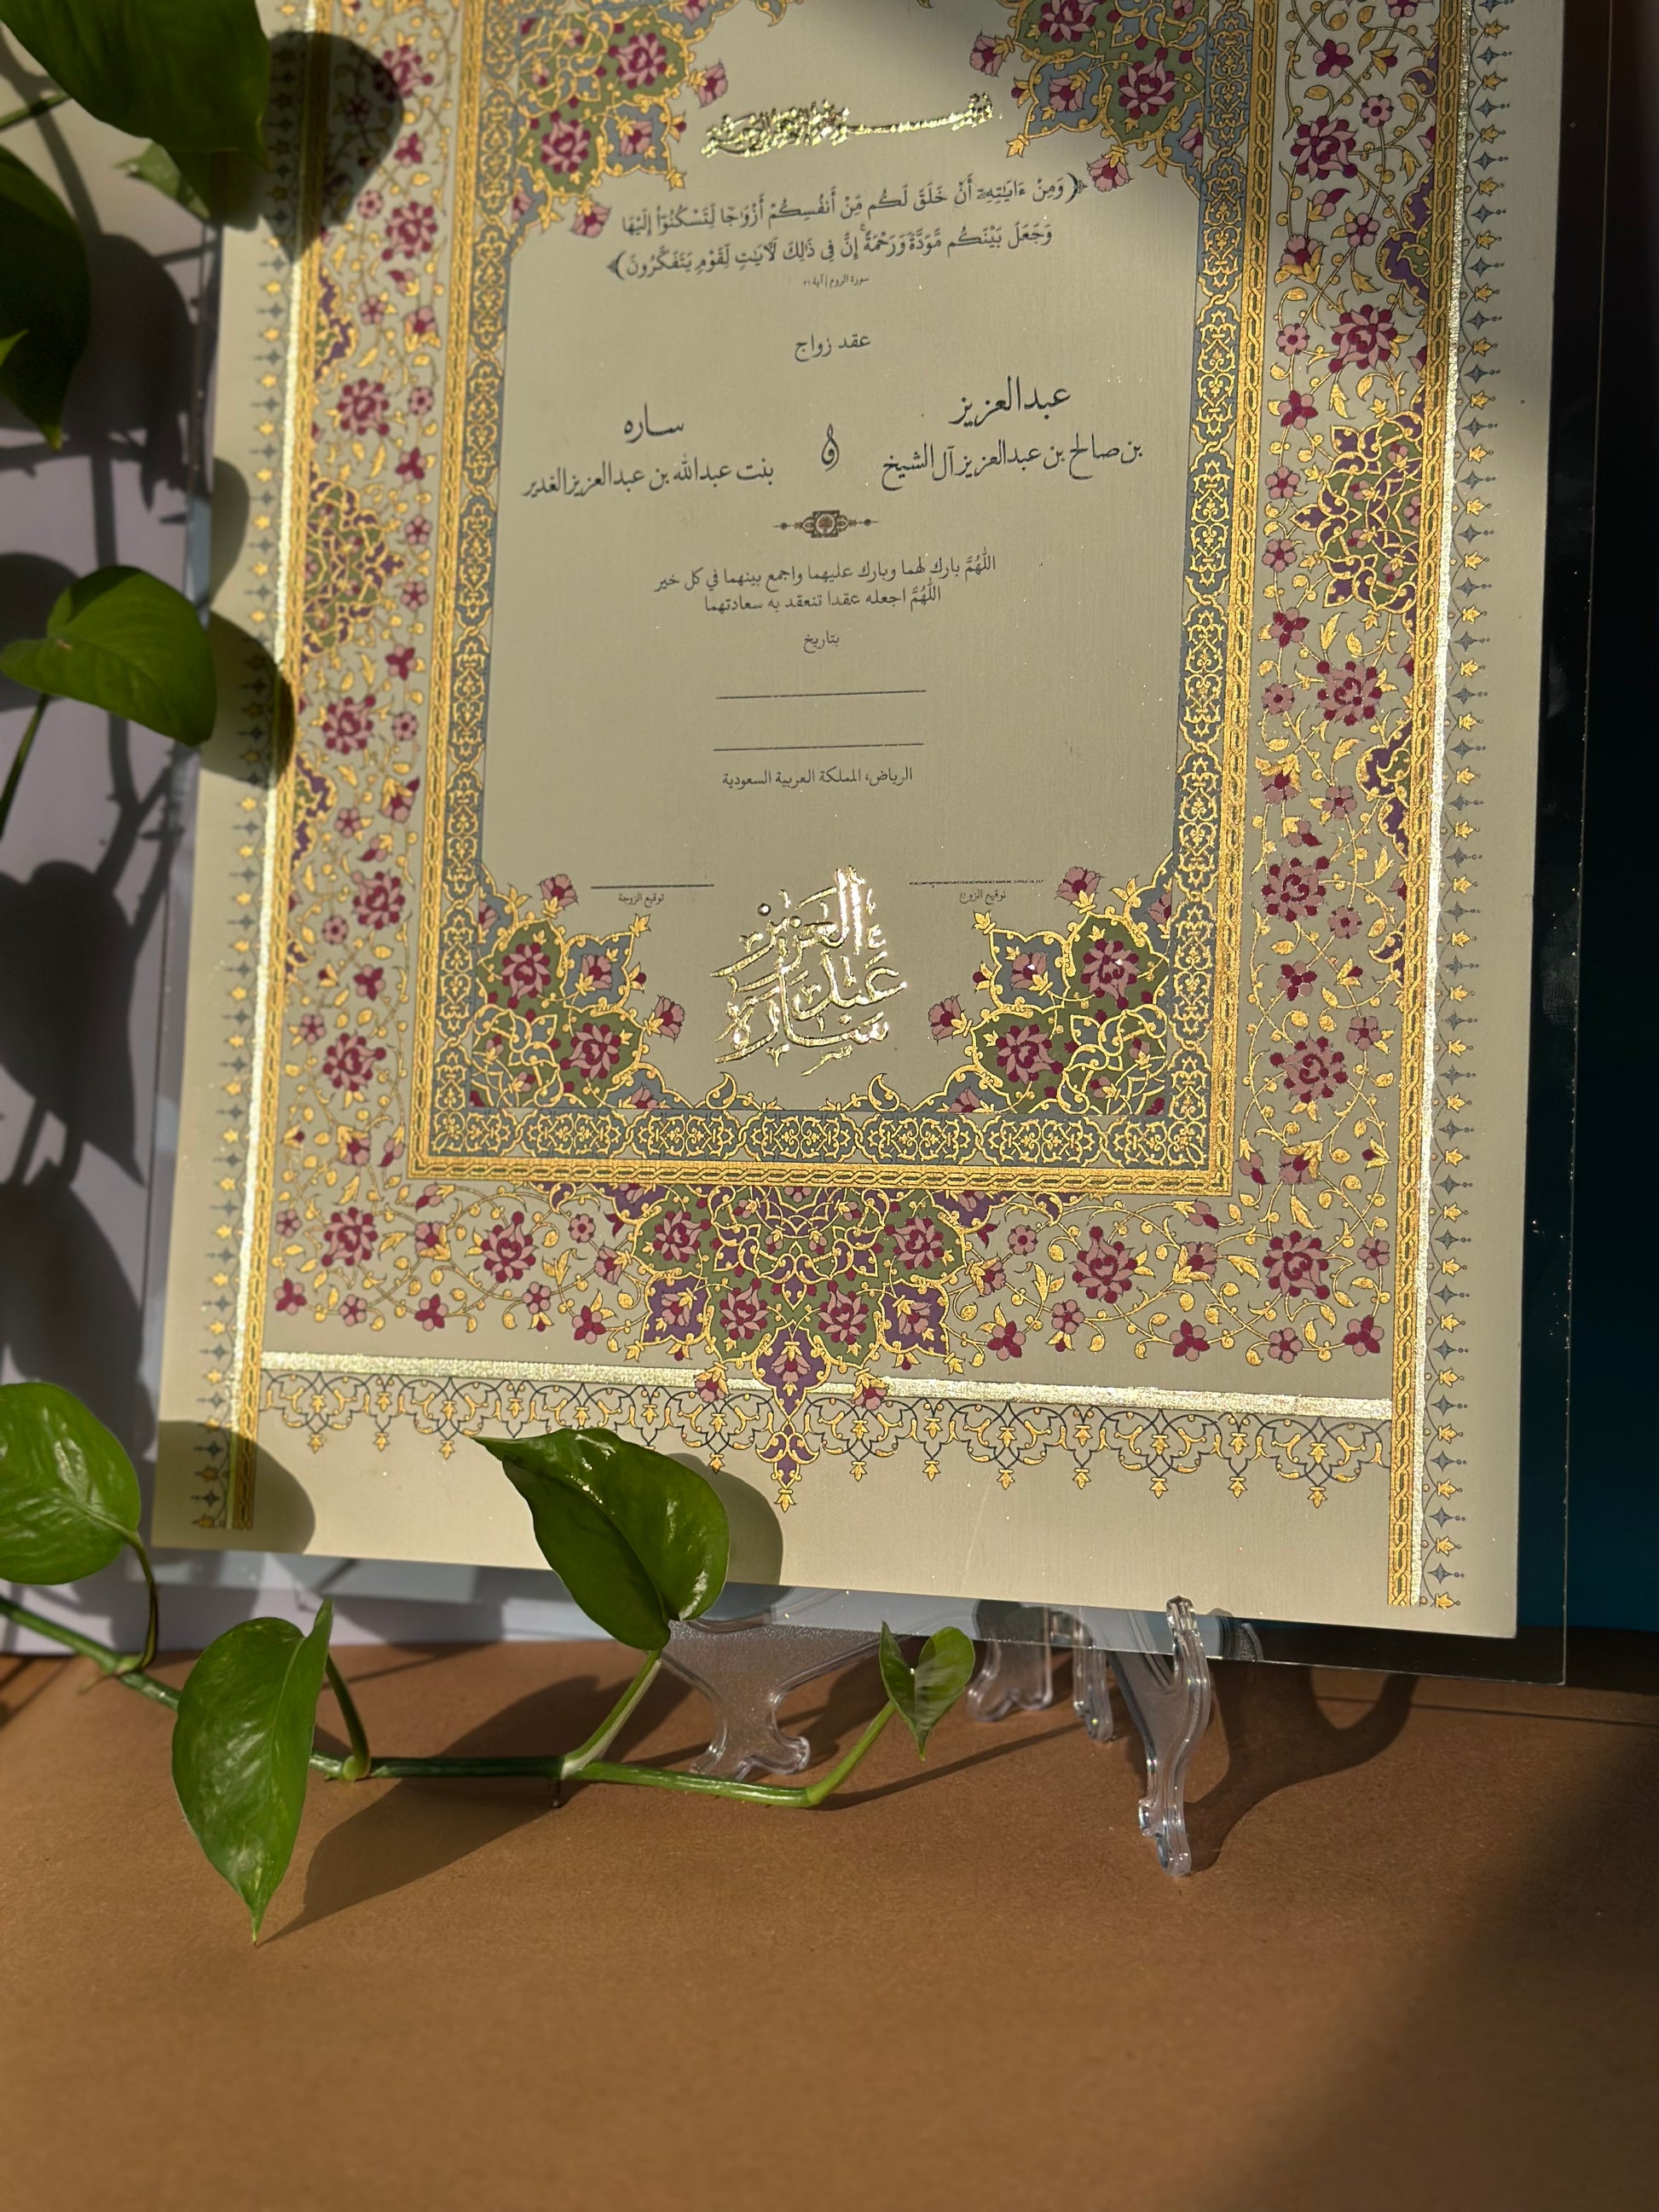 بسم الله الرحمن الرحيم
﴿وَمِنْ ءَايَٰتِهِۦٓ أَنْ خَلَقَ لَكُم مِّنْ أَنفُسِكُمْ أَزْوَٰجًا لِّتَسْكُنُوٓا۟ إِلَيْهَا
وَجَعَلَ بَيْنَكُم مَّوَدَّةً وَرَحْمَةً ۚ إِنَّ فِى ذَٰلِكَ لَءَايَٰتٍ لِّقَوْمٍ يَتَفَكَّرُونَ﴾
سورة الروم | آية ٢١
عقد زواج
عبدالعزيز
بن صالح بن عبدالعزيز آل الشيخ
و
ساره
بنت عبدالله بن عبدالعزيز الغدير
اللَّهُمَّ بارك لهما وبارك عليهما واجمع بينهما في كل خير
اللَّهُمَّ اجعله عقدا تنعقد به سعادتهما
بتاريخ
الرياض، المملكة العربية السعودية
توقيع الزوج
توقيع الزوجة
عبدالعزيز
ساره